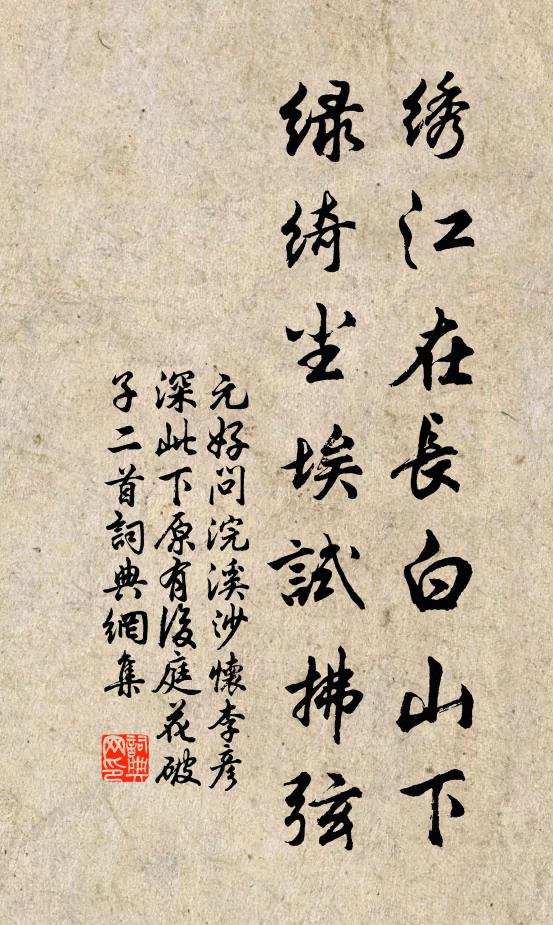 绣江在長白山下
绿绮尘埃試拂弦
元好问浣溪沙懷李彦
深此下原有後庭花破
子二首詞典網集
詞典网印